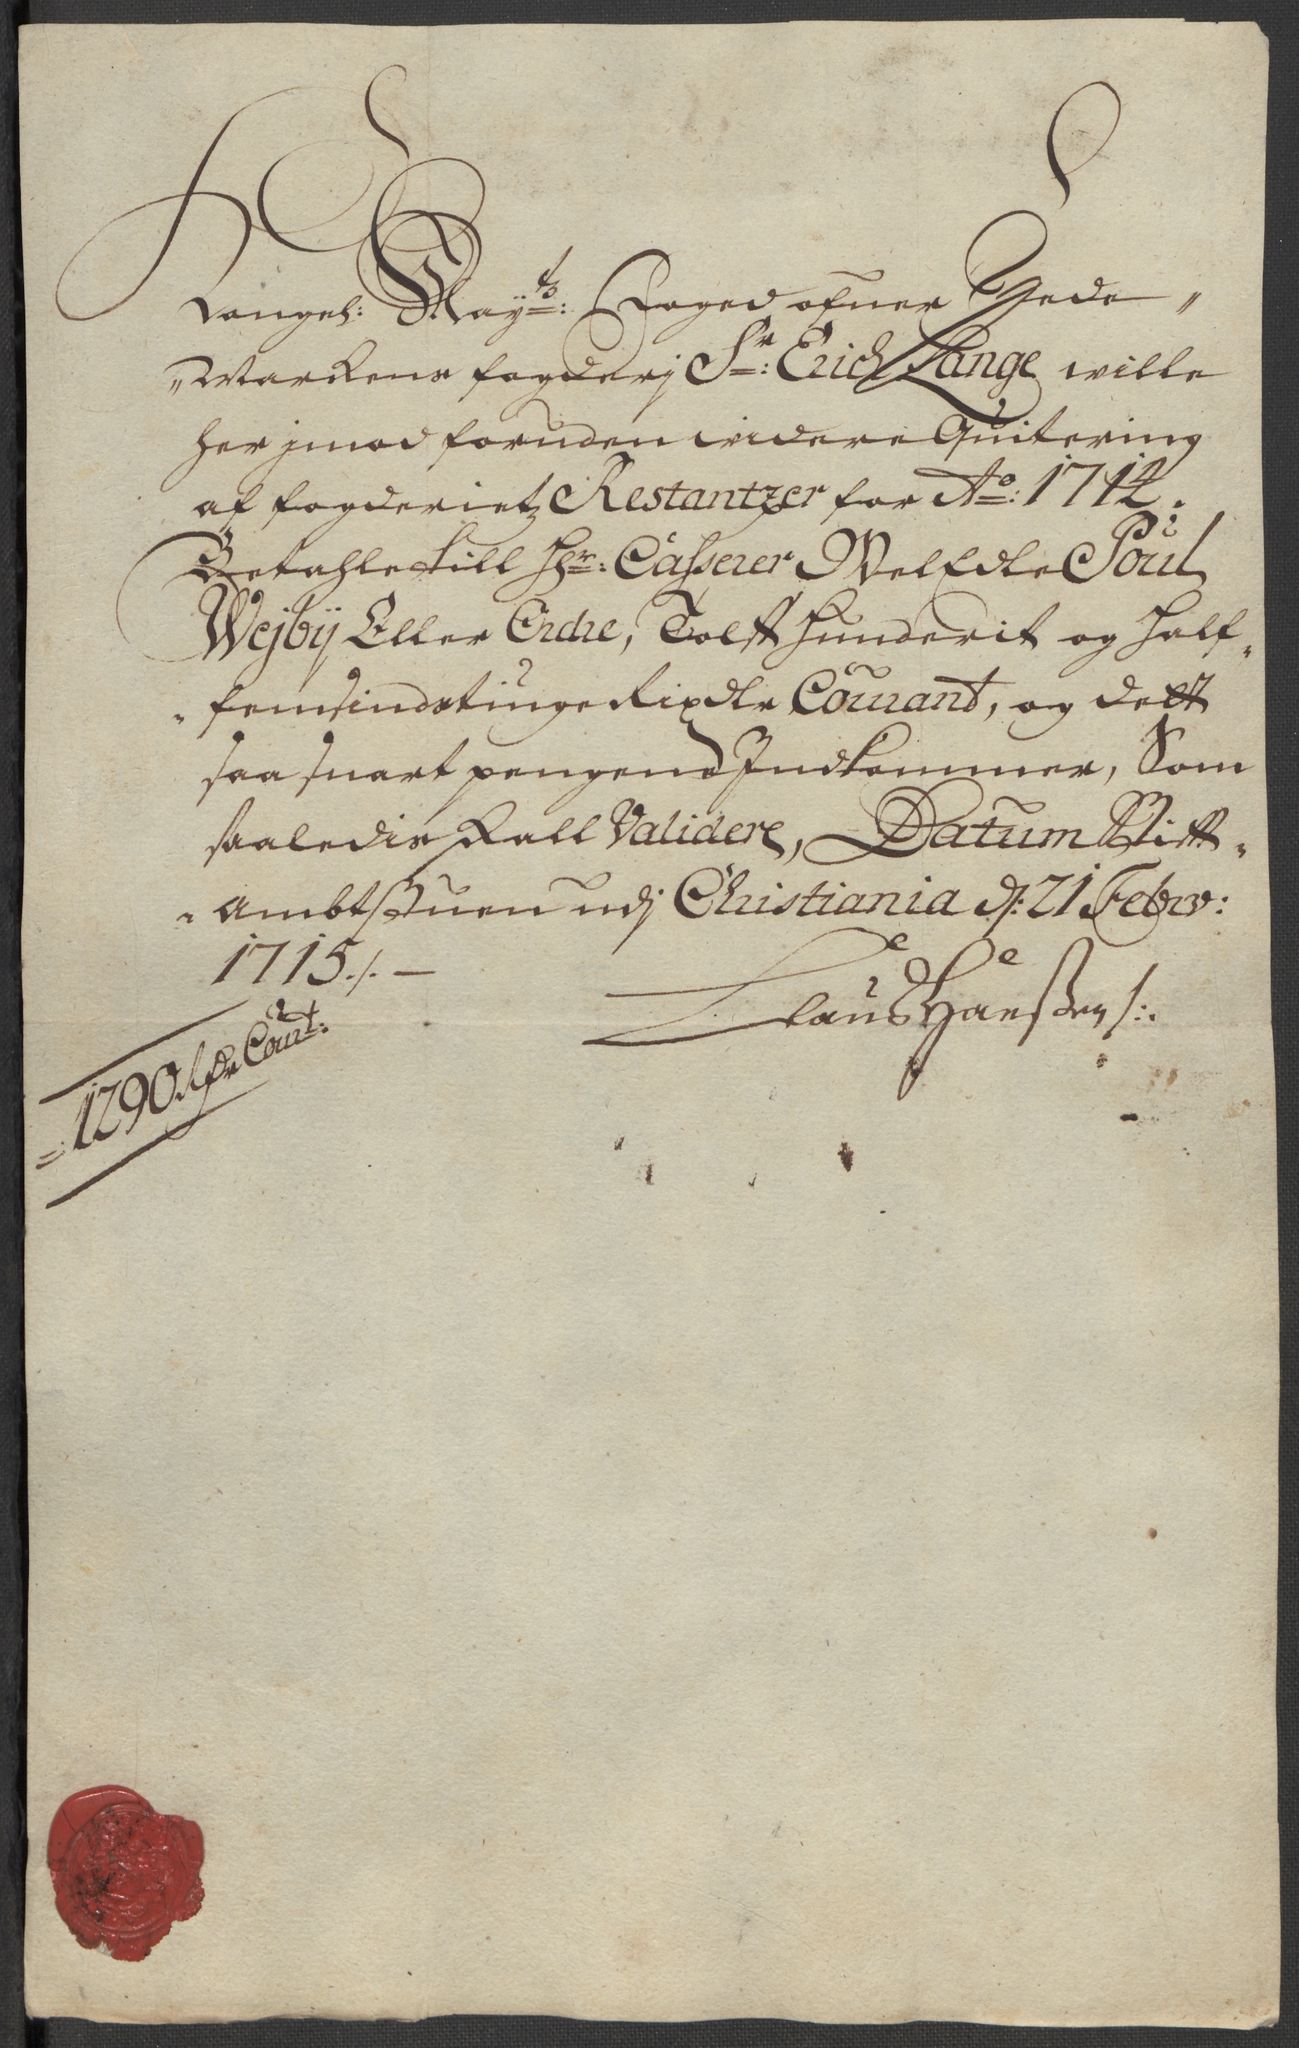 Kongel: Mayts: Foged ofuer Hede„
„Marckens fogderj Sr: Erich Lange wille
her jmod foruden videre Quitering
af fogderietz Restantzer for Ao: 1714.
Betahle till Hr: Casserer WelEdle Poul
Wejbÿ Eller Ordre, Tolff hunderit og half-
-femsindstiuge Rixdlr Courant, og dett
saa snart pengene Indkommer, Som
saaledis skall Validere, Datum Stift-
-Ambtstuen udj Christiania d: 21 Febrv:
1715./. —
Claus Hanssen /:.
1290 Rdr Cou̅t: